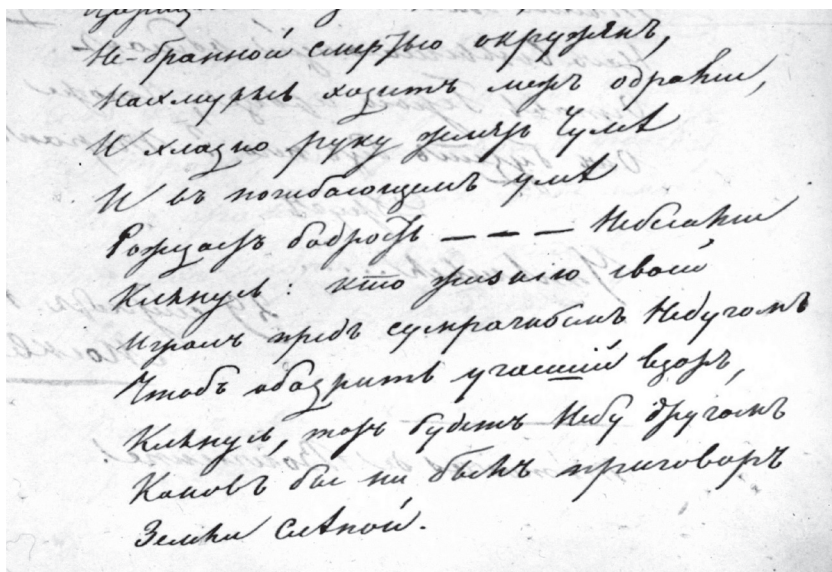 Не-бранной смертью окруженъ,
Нахмурясь ходитъ межъ одрами,
И хладно руку жметъ Чумѣ
И въ погибающемъ умѣ
Рождаетъ бодрость — — — Небесами
Клянусь: кто жизнію своей
Игралъ предъ сумрачнымъ Недугомъ
Чтобъ ободрить угасшій взоръ,
Клянусь, тотъ будетъ Небу другомъ
Каковъ бы ни былъ приговоръ
Земли слѣпой.